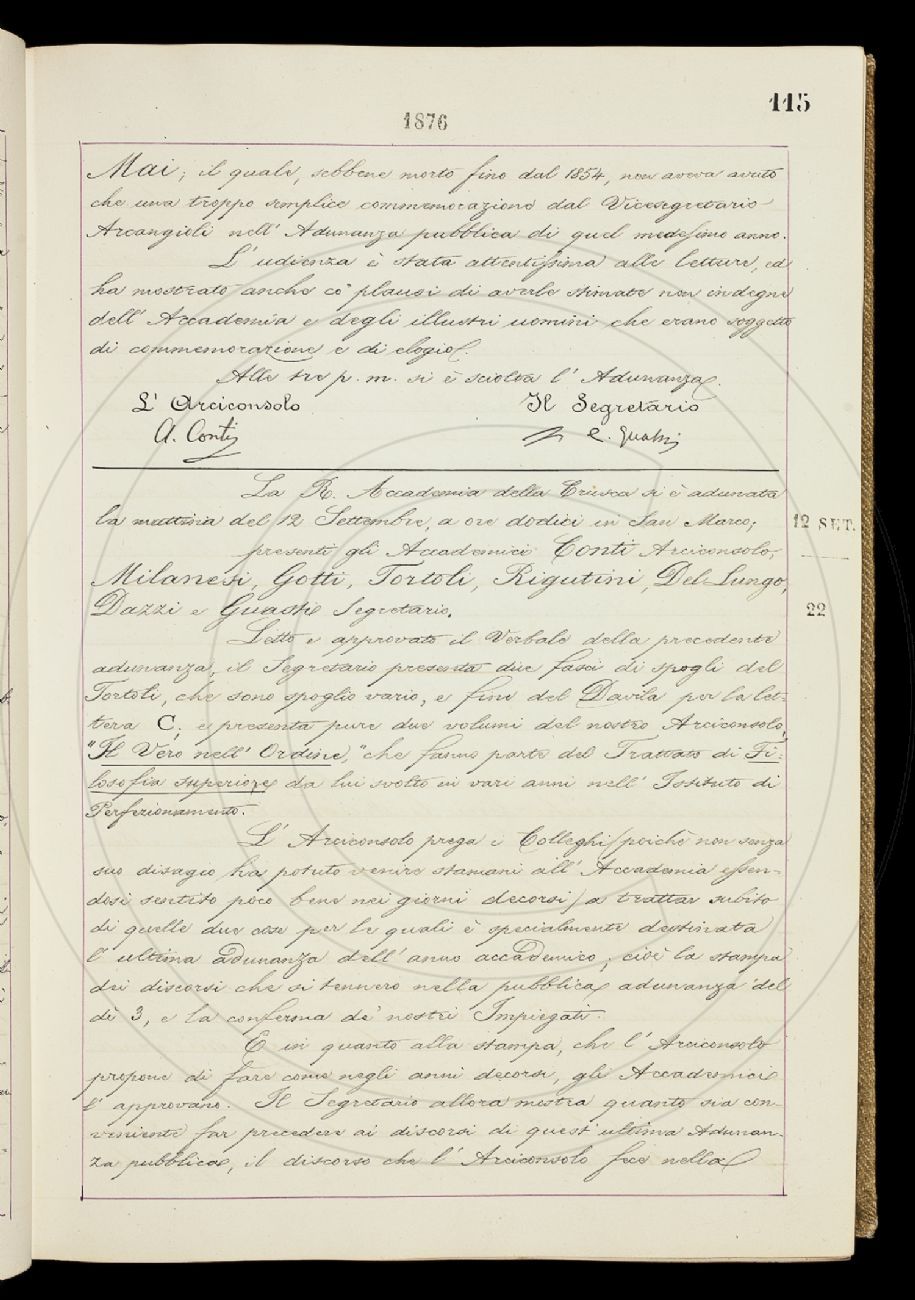 115
1876
Mai; il quale, sebbene morto fino dal 1854, non aveva avuto
che una troppo semplice commemorazione dal Vicesegretario
Arcangioli nell' Adunanza pubblica di quel medesimo anno.
L' udienza è stata attentissima alle letture, ed
ha mostrato anche co' plausi di averle stimate non indegne
dell' Accademia e degli illustri uomini che erano soggetto
di commemorazione e di elogio.
Alle tre p. m. si è sciolta l' Adunanza.
L' Arciconsolo Il Segretario
A. Conti C. Guasti
La R. Accademia della Crusca si è adunata
la mattina del 12 Settembre, a ore dodici in San Marco;
12 SET.
presenti gli Accademici Conti Arciconsolo,
Milanesi, Gotti, Tortoli, Rigutini, Del Lungo,
Dazzi e Guasti Segretario.
22
Letto e approvato il Verbale della precedente
adunanza, il Segretario presenta due fasci di spogli del
Tortoli, che sono spoglio vario, e fine del Davila per la let-
tera C; e presenta pure due volumi del nostro Arciconsolo,
"Il Vero nell' Ordine," che fanno parte del Trattato di Fi-
losofia superiore da lui svolto in vari anni nell' Istituto di
Perfezionamento.
L' Arciconsolo prega i Colleghi (poichè non senza
suo disagio ha potuto venire stamani all' Accademia essen-
dosi sentito poco bene nei giorni decorsi) a trattar subito
di quelle due cose per le quali è specialmente destinata
l' ultima adunanza dell' anno accademico; cioè la stampa
dei discorsi che si tennero nella pubblica adunanza del
dì 3, e la conferma de' nostri Impiegati.
E in quanto alla stampa, che l' Arciconsolo
propone di fare come negli anni decorsi, gli Accademici
l' approvano. Il Segretario allora mostra quanto sia con-
veniente far precedere ai discorsi di quest' ultima Adunan-
za pubblica, il discorso che l' Arciconsolo fece nella